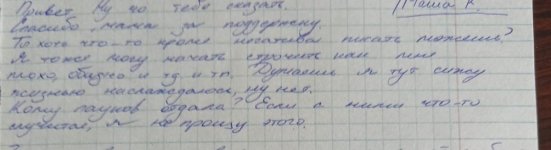 Привет. Ну чо тебе сказать. Маша К.
Спасибо, мама за поддержку.
Ты хоть что-то кроме негатива писать можешь?
Я тоже могу начать строчить как мне
плохо, обидно и тд и тп. Думаешь я тут сижу
жизнью наслаждаюсь, ну нет.
Кому пауков отдала? Если с ними что-то
случится, я не прощу этого.